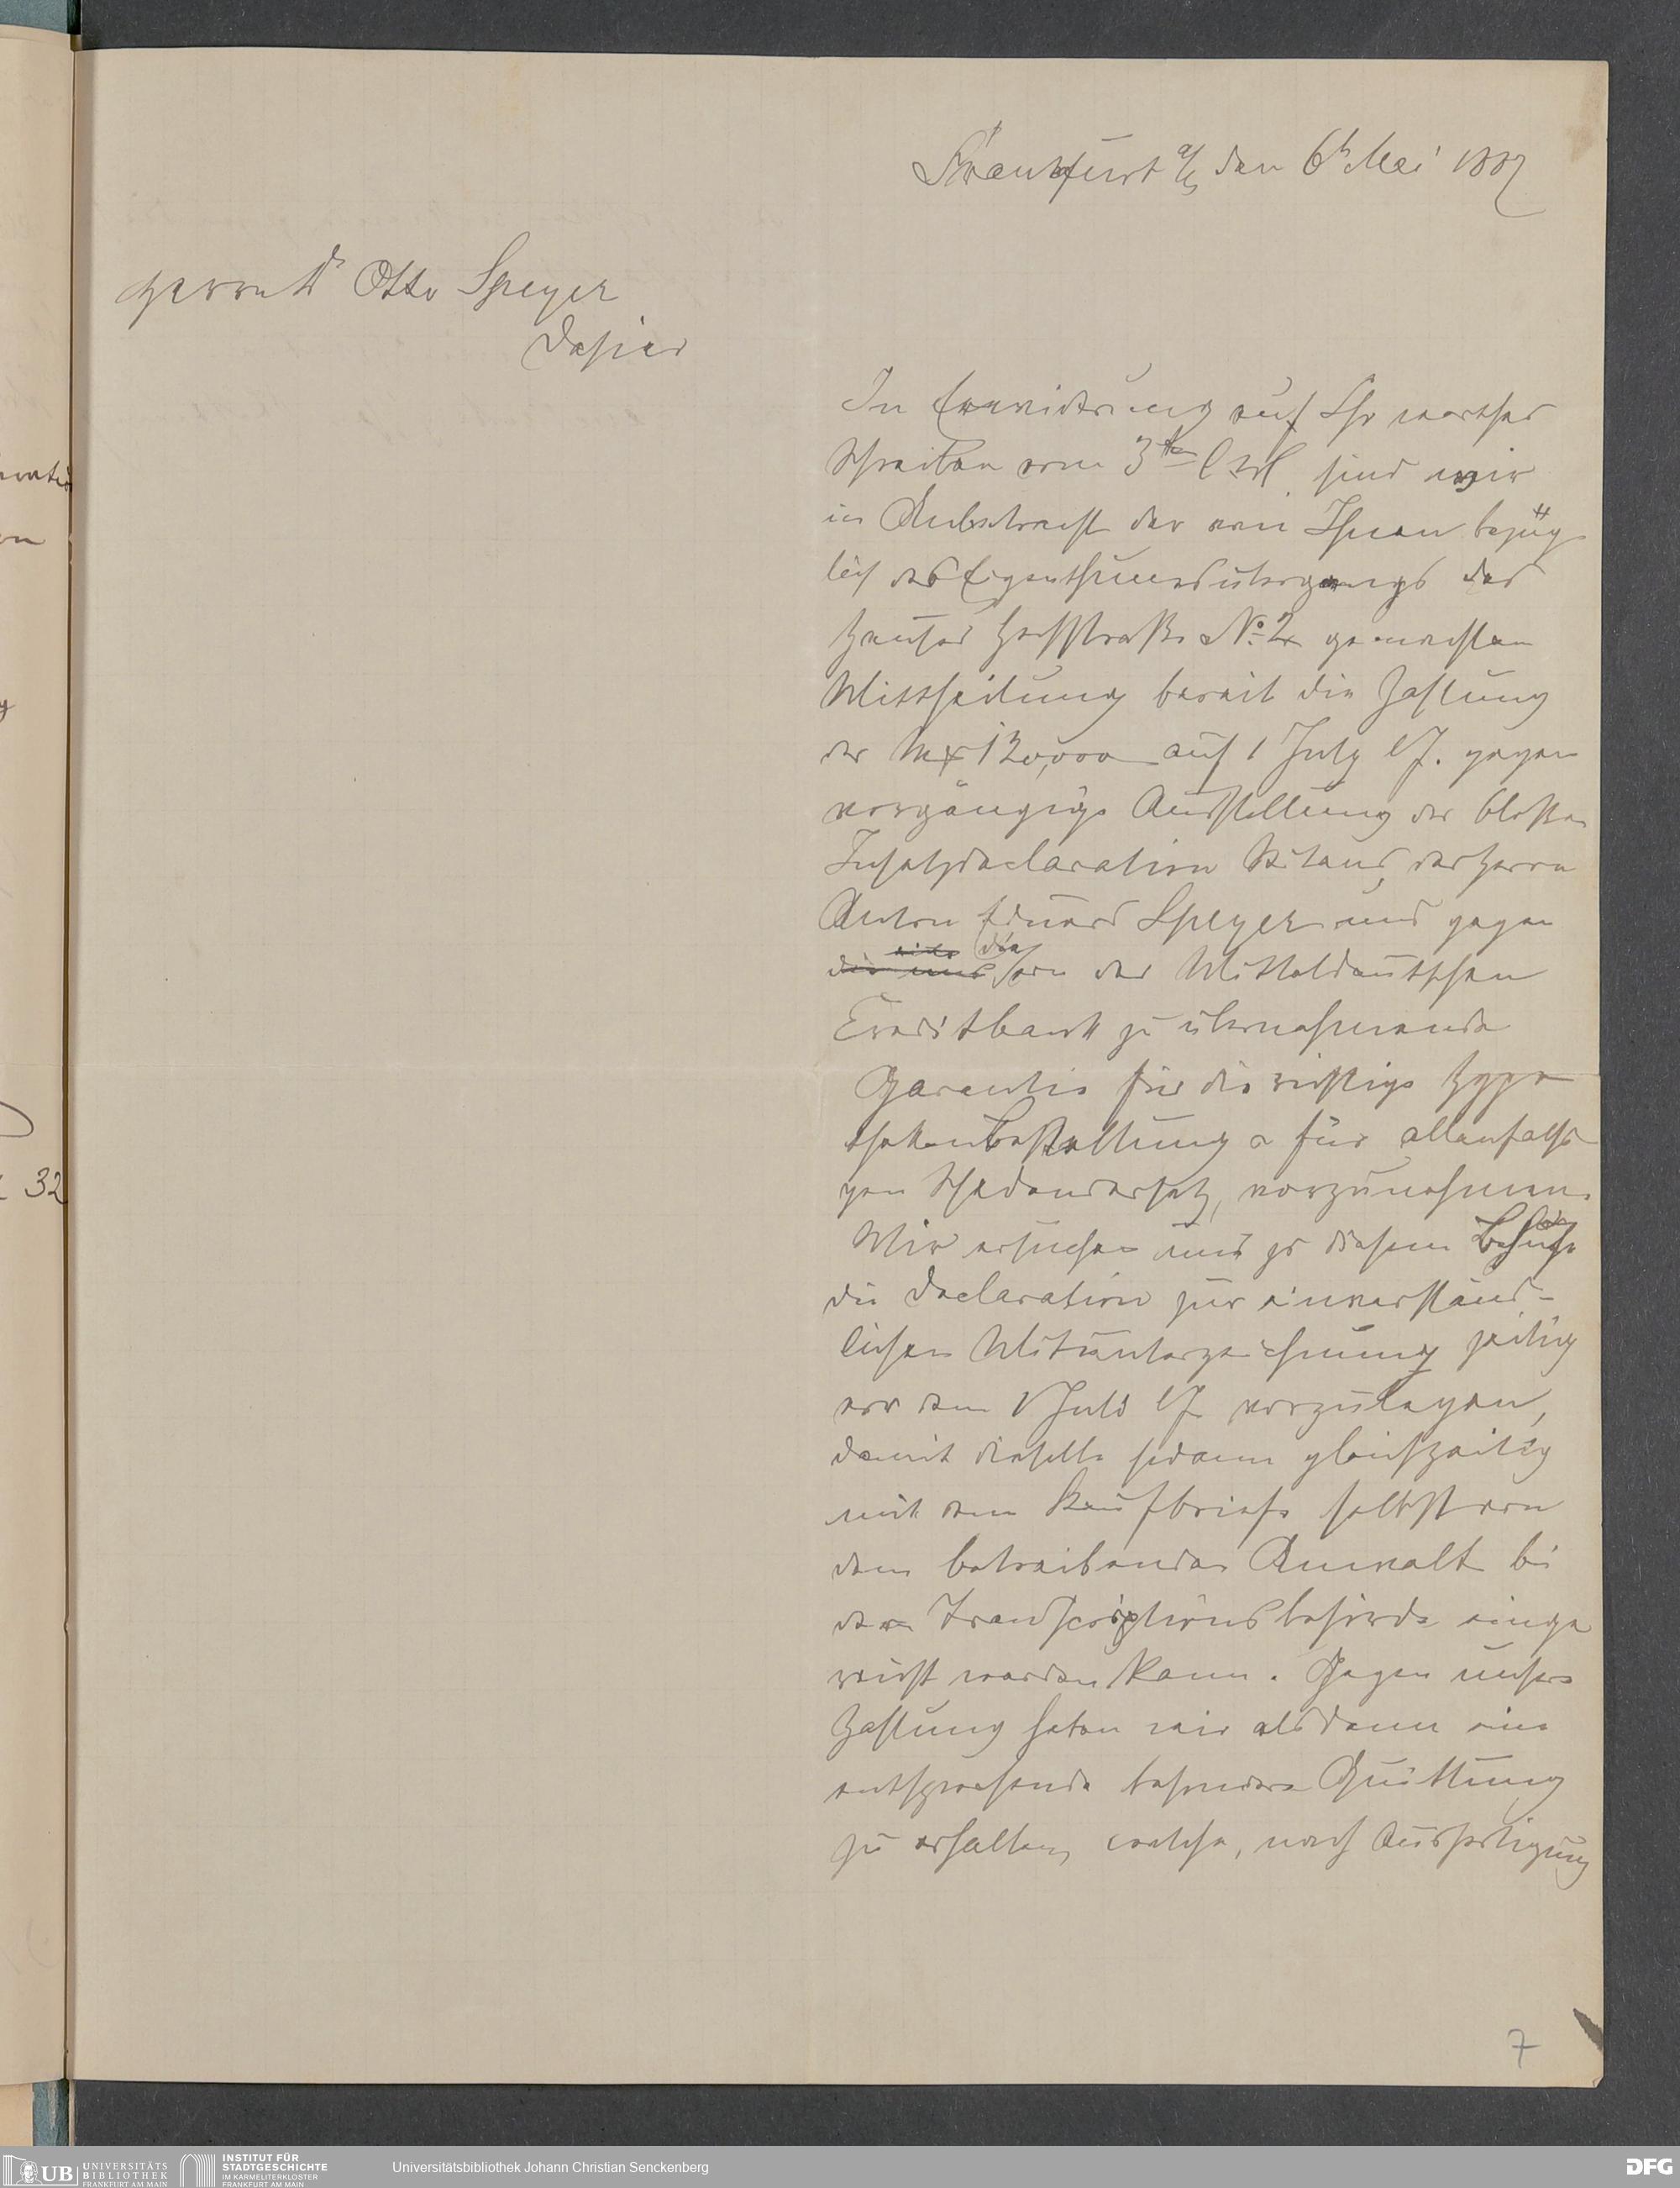 Frankfurt a/M den 6t Mai 1887
Herrn Dr Otto Speyer
Dahier
In Erwiderung auf Ihr werthes
Schreiben vom 3ten sind wir
in Anbetracht der von Ihnen bezüg
lich des Eigenthumsübergangs des
Hauses Hochstraße No. 2 gemachten
Mittheilung bereit die Zahlung
der Mx 120,000 auf 1 July l/J. gegen
vorgängige Ausstellung der bloßen
Insatzdeclaration Seitens, des Herrn
Anton Eduard Speyer und gegen
die von der Mitteldeutschen
Creditbank zu übernehmende
Garantie für die richtige Hypo
thekenbestellung & für allenfallsi
gen Schadensersatz, vorzunehmen.
Wir ersuchen uns zu diesem Behufe
die Declaration zur einverständ-
lichen Mitunterzeichnung zeitig
vor dem 1 Juli l/J vorzulegen,
damit dieselbe sodann gleichzeitig
mit dem Kaufbriefe selbst von
dem betreibenden Anwalt bei
der Transcriptionsbehörde einge
reicht werden kann. Gegen unsere
Zahlung haben wir alsdann eine
entsprechende besondere Quittung
zu erhalten, welche, nach Ausfertigung
7
32
UB UNIVERSITÄTS
BIBLIOTHEK
FRANKFURT AM MAIN
INSTITUT FÜR
STADTGESCHICHTE
IM KARMELITERKLOSTER
FRANKFURT AM MAIN
Universitätsbibliothek Johann Christian Senckenberg
DFG